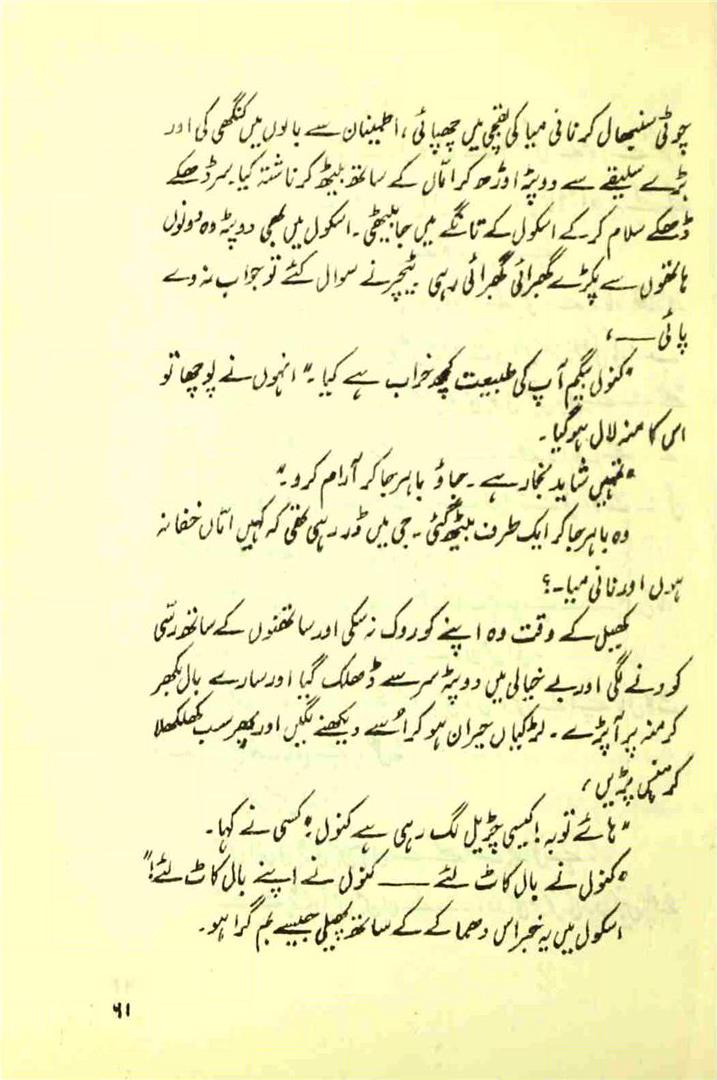 چوٹی سنبھال کر نانی میا کی بقچی میں چھپائی، اطمینان سے بالوں میں کنگھی کی اور
بڑے سلیقے سے دوپٹہ اوڑھ کر اماں کے ساتھ بیٹھ کر ناشتہ کیا۔ سر ڈھکے
ڈھکے سلام کر کے اسکول کے تانگے میں جا بیٹھی۔ اسکول میں بھی دوپٹہ وہ دونوں
ہاتھوں سے پکڑے گھبرائی گھبرائی رہی۔ ٹیچر نے سوال کئے تو جواب نہ دے
پائی ــــ،
"کنول بیگم آپ کی طبیعت کچھ خراب ہے کیا۔" انہوں نے پوچھا تو
اس کا منہ لال ہو گیا۔
"تمہیں شاید بخار ہے۔ جاؤ باہر جا کر آرام کرو۔"
وہ باہر جا کر ایک طرف بیٹھ گئی۔ جی میں ڈر رہی تھی کہ کہیں اماں خفا نہ
ہوں اور نانی میا۔؟
کھیل کے وقت وہ اپنے کو روک نہ سکی اور ساتھنوں کے ساتھ رسّی
کودنے لگی اور بے خیالی میں دوپٹہ سر سے ڈھلک گیا اور سارے بال بکھر
کر منہ پر آ پڑے۔ لڑکیاں حیران ہو کر اُسے دیکھنے لگیں اور پھر سب کھلکھلا
کر ہنس پڑیں،
"ہائے توبہ! کیسی چڑیل لگ رہی ہے کنول" کسی نے کہا۔
"کنول نے بال کاٹ لئے ــــ کنول نے اپنے بال کاٹ لئے!"
اسکول میں یہ خبر اس دھماکے کے ساتھ پھیلی جیسے بم گرا ہو۔
۶۱